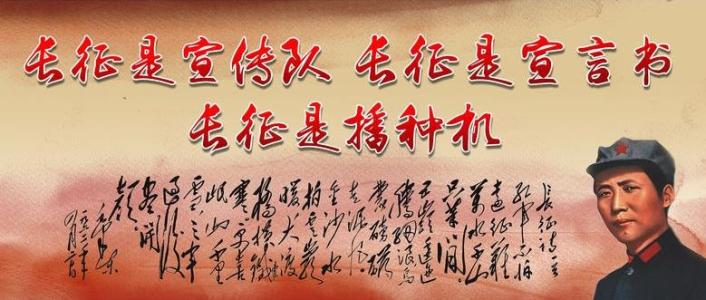 长征是宣传队 长征是宣言书
长征是播种机
长征诗一首
红军不怕
远征难
万水千山
只等闲
五岭逶迤
腾细浪乌
蒙磅礴
走泥丸
金沙水
拍云崖
暖大渡
桥横铁索
寒更喜
岷山千里
雪三军
过后
尽开
颜
毛泽东
一九六二年